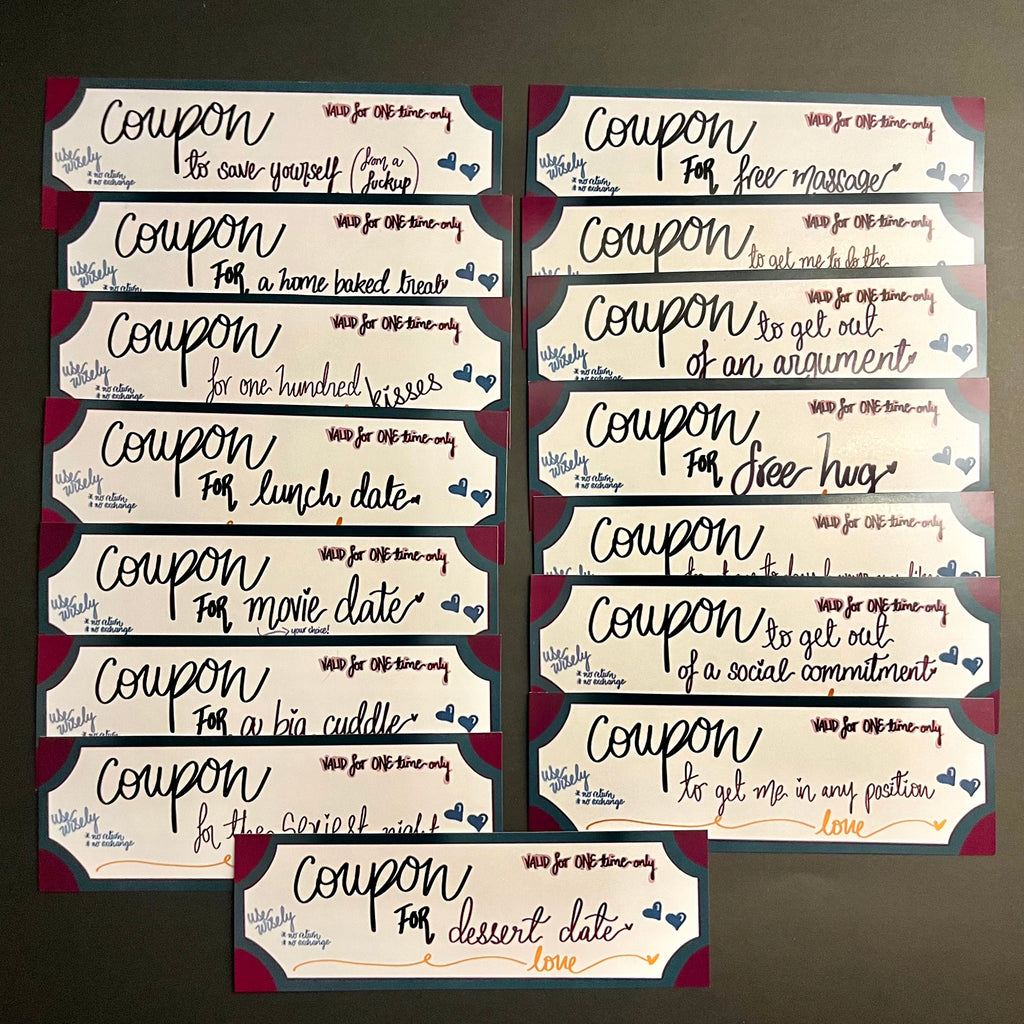 Coupon
VALID for ONE time only
to save yourself (from a fuckup)
use wisely
* no return
* no exchange
Coupon
VALID for ONE time only
FOR a home baked treat
use wisely
* no return
Coupon
VALID for ONE time only
for one hundred kisses
use wisely
* no return
* no exchange
Coupon
VALID for ONE time only
FOR lunch date
use wisely
* no return
* no exchange
Coupon
VALID for ONE time only
FOR movie date
your choice!
use wisely
* no return
* no exchange
Coupon
VALID for ONE time only
FOR a big cuddle
use wisely
* no return
* no exchange
Coupon
VALID for ONE time only
for the sexiest night
use wisely
* no return
* no exchange
Coupon
VALID for ONE time only
FOR free massage
use wisely
* no return
* no exchange
Coupon
VALID for ONE time only
to get me to do the
use wisely
Coupon
VALID for ONE time only
to get out
of an argument
use wisely
* no return
* no exchange
Coupon
VALID for ONE time only
FOR free hug
use wisely
* no return
* no exchange
Coupon
VALID for ONE time only
use wisely
Coupon
VALID for ONE time only
to get out
of a social commitment
use wisely
* no return
* no exchange
Coupon
VALID for ONE time only
to get me in any position
use wisely
* no return
* no exchange
love
Coupon
VALID for ONE time only
FOR dessert date
use wisely
* no return
* no exchange
love